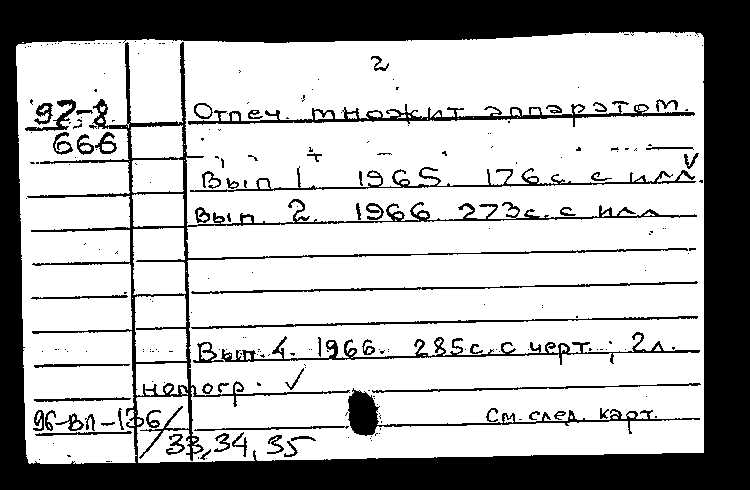 2
92-8
Отпеч. множит аппаратом.
666
Вып 1. 1965. 176 с. с илл.
Вып. 2. 1966 273 с. с илл
Вып. 4. 1966. 285 с. с черт.; 2 л.
номогр. ✓
96-ВЛ-136/33,34,35
См. след. карт.